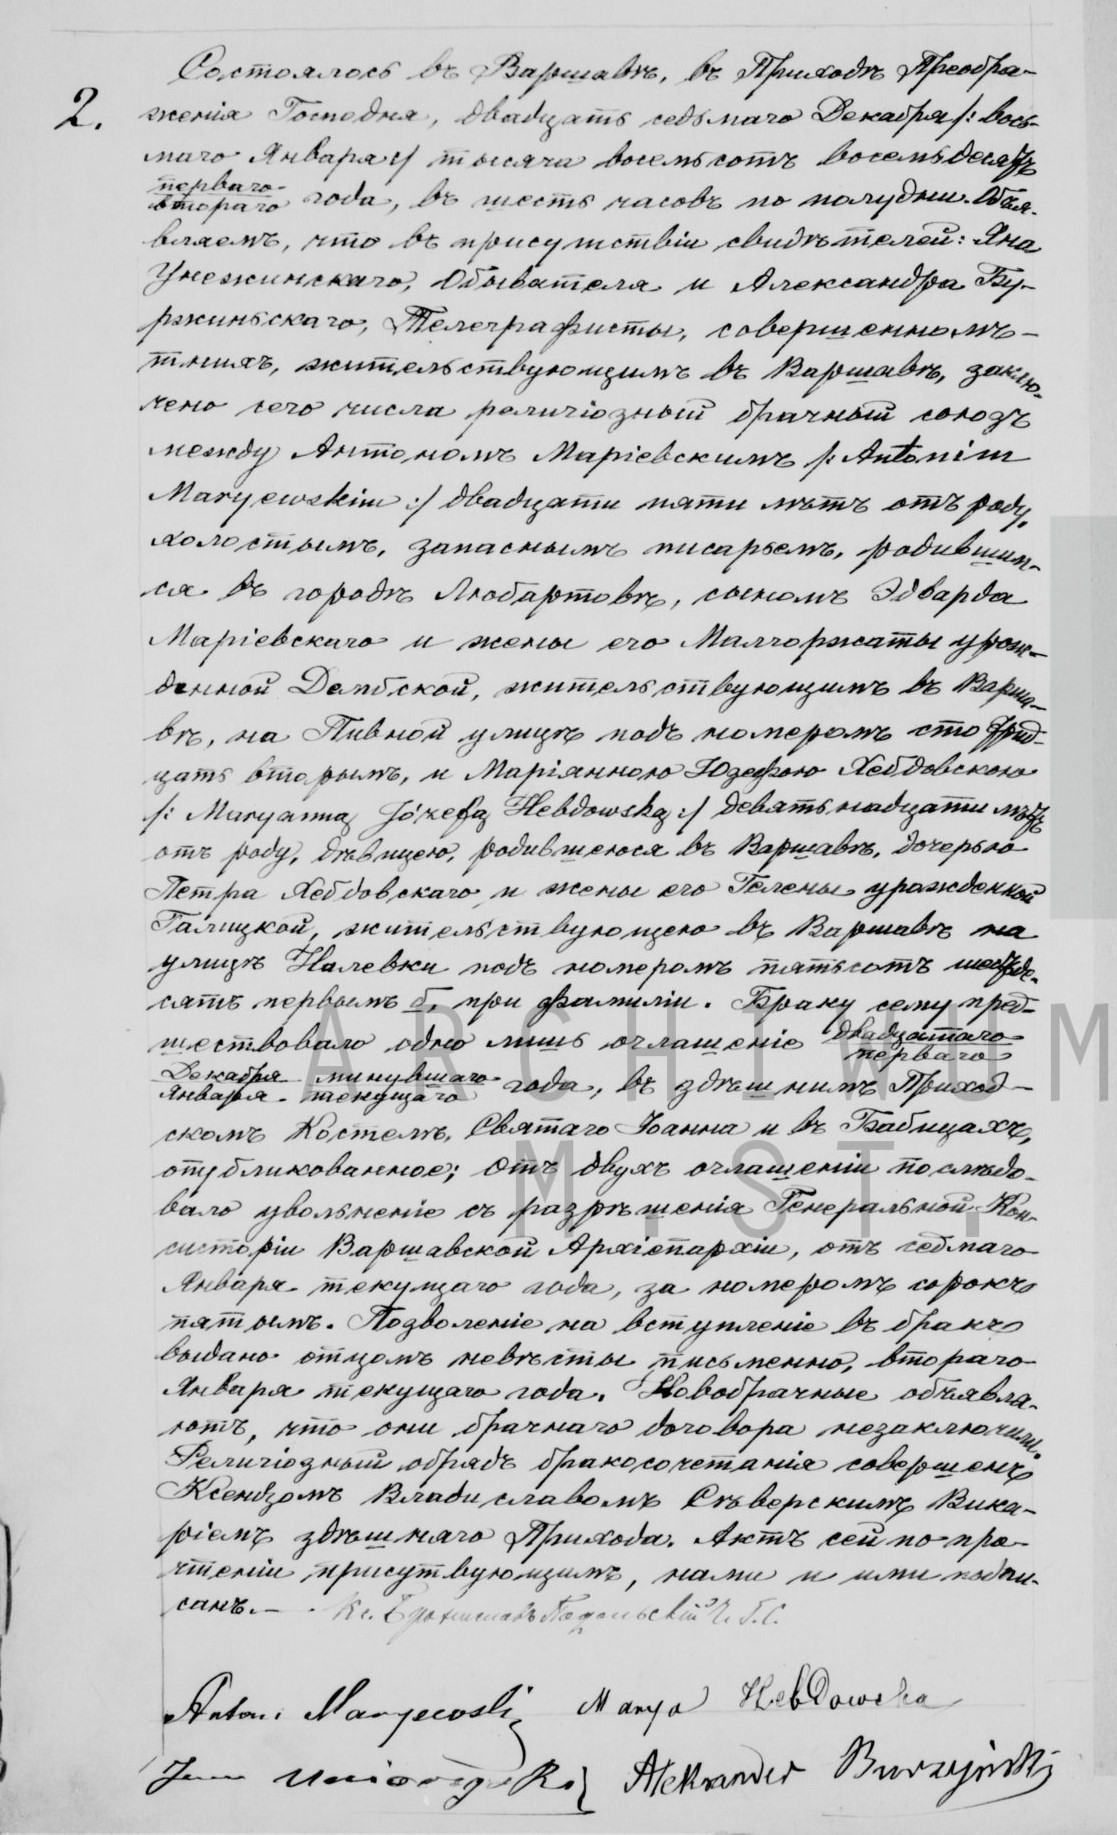 2.
Состоялось въ Варшавѣ, въ Приходѣ Преобра-
женія Господня, двадцать седьмаго Декабря /: вось-
маго Января :/ тысяча восемьсотъ восемьдесятъ
перваго
втораго года, въ шесть часовъ по полудни. Объя-
вляемъ, что въ присутствіи свидѣтелей: Яна
Унежинскаго, Обывателя и Александра Бу-
ржиньскаго, Телеграфисты, совершеннолѣ-
тнихъ, жительствующимъ въ Варшавѣ, заклю-
чено сего числа религіозный брачный союзъ
между Антономъ Маріевскимъ /: Antonim
Maryewskim :/ двадцати пяти лѣтъ отъ роду,
холостымъ, запаснымъ писарьемъ, родившим-
ся въ городѣ Любартовѣ, сыномъ Эдварда
Маріевскаго и жены его Малгоржаты урож-
денной Дембской, жительствующимъ въ Варша-
вѣ, на Пивной улицѣ подъ номеромъ сто трид-
цать вторымъ, и Маріянною Юзефою Хебдовскою
/: Maryanną Józefą Hebdowską :/ девятьнадцати лѣтъ
отъ роду, дѣвицею, родившеюся въ Варшавѣ, дочерью
Петра Хебдовскаго и жены его Гелены урожденной
Галицкой, жительствующею въ Варшавѣ на
улицѣ Налевки подъ номеромъ пятьсотъ шестьде-
сятъ первымъ б, при фамиліи. Браку сему пред-
шествовало одно лишь оглашеніе двадцатаго
перваго
Декабря минувшаго
Января текущаго года, въ здѣшнимъ Приход-
скомъ Костелѣ, Святаго Іоанна и въ Бабицахъ,
опубликованное; отъ двухъ оглашеніи послѣдо-
вало увольненіе съ разрѣшенія Генеральной Кон-
систоріи Варшавской Архіепархіи, отъ седмаго
Января текущаго года, за номеромъ сорокъ
пятымъ. Позволеніе на вступленіе въ бракъ
выдано отцомъ невѣсты письменно, втораго
Января текущаго года. Новобрачные объявля-
ютъ, что они брачнаго договора незаключили.
Религіозный обрядъ бракосочетанія совершенъ
Ксендзомъ Владиславомъ Сѣверскимъ Вика-
ріемъ здѣшняго Прихода. Актъ сей по про-
чтеніи присутвующимъ, нами и ими подпи-
санъ. — Кс. Подольскій Ч. Г. С.
Antoni Maryewski Marya Hebdowska
Jan Aleksander Burzyński
ARCHIWUM
M.ST.